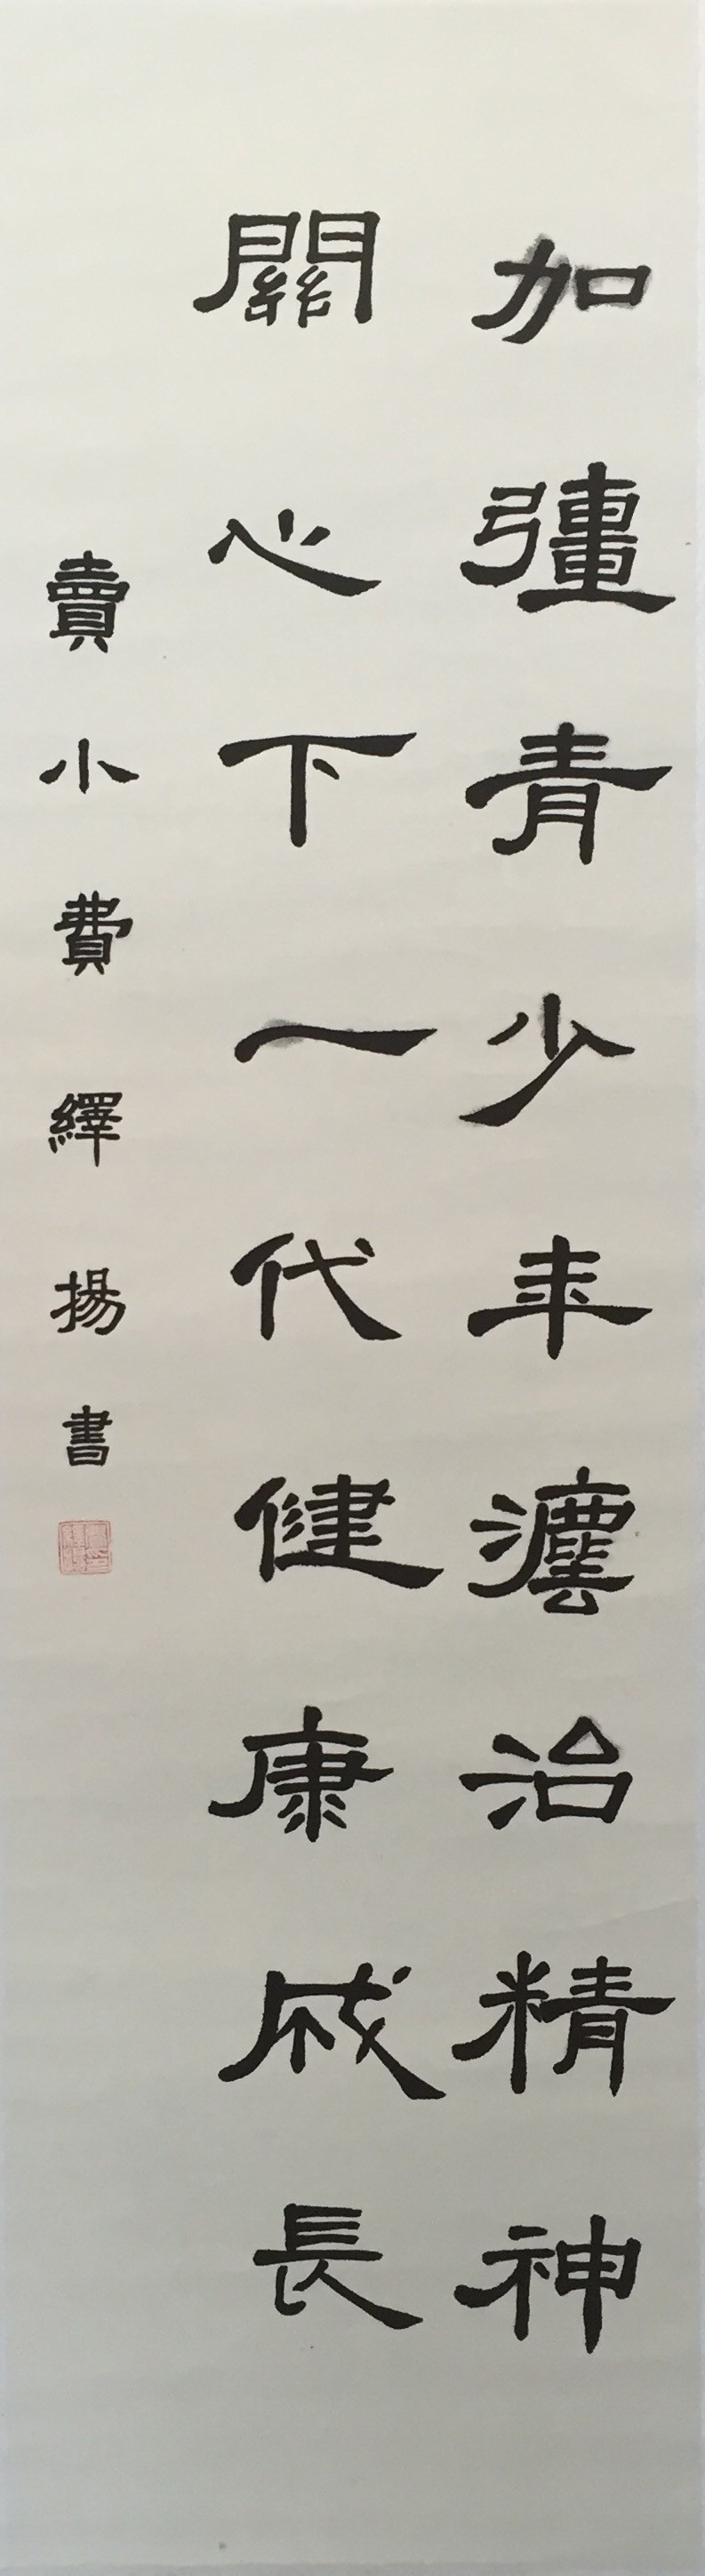 加彊青少年灋治精神
關心下一代健康成長
賣小費繹揚書